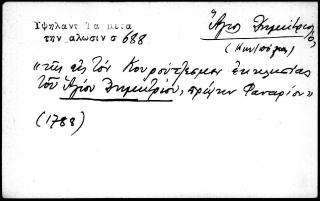 Υψηλαντ Τα μετα
την αλωσιν σ 688
Ἅγιος Δημήτριος
(Κων/πόλεως)
"τῆς εἰς τὸν Κουρούτζεσμεν ἐκκλησίας
τοῦ Ἁγίου Δημητρίου, πρώην Φαναρίου"
(1788)